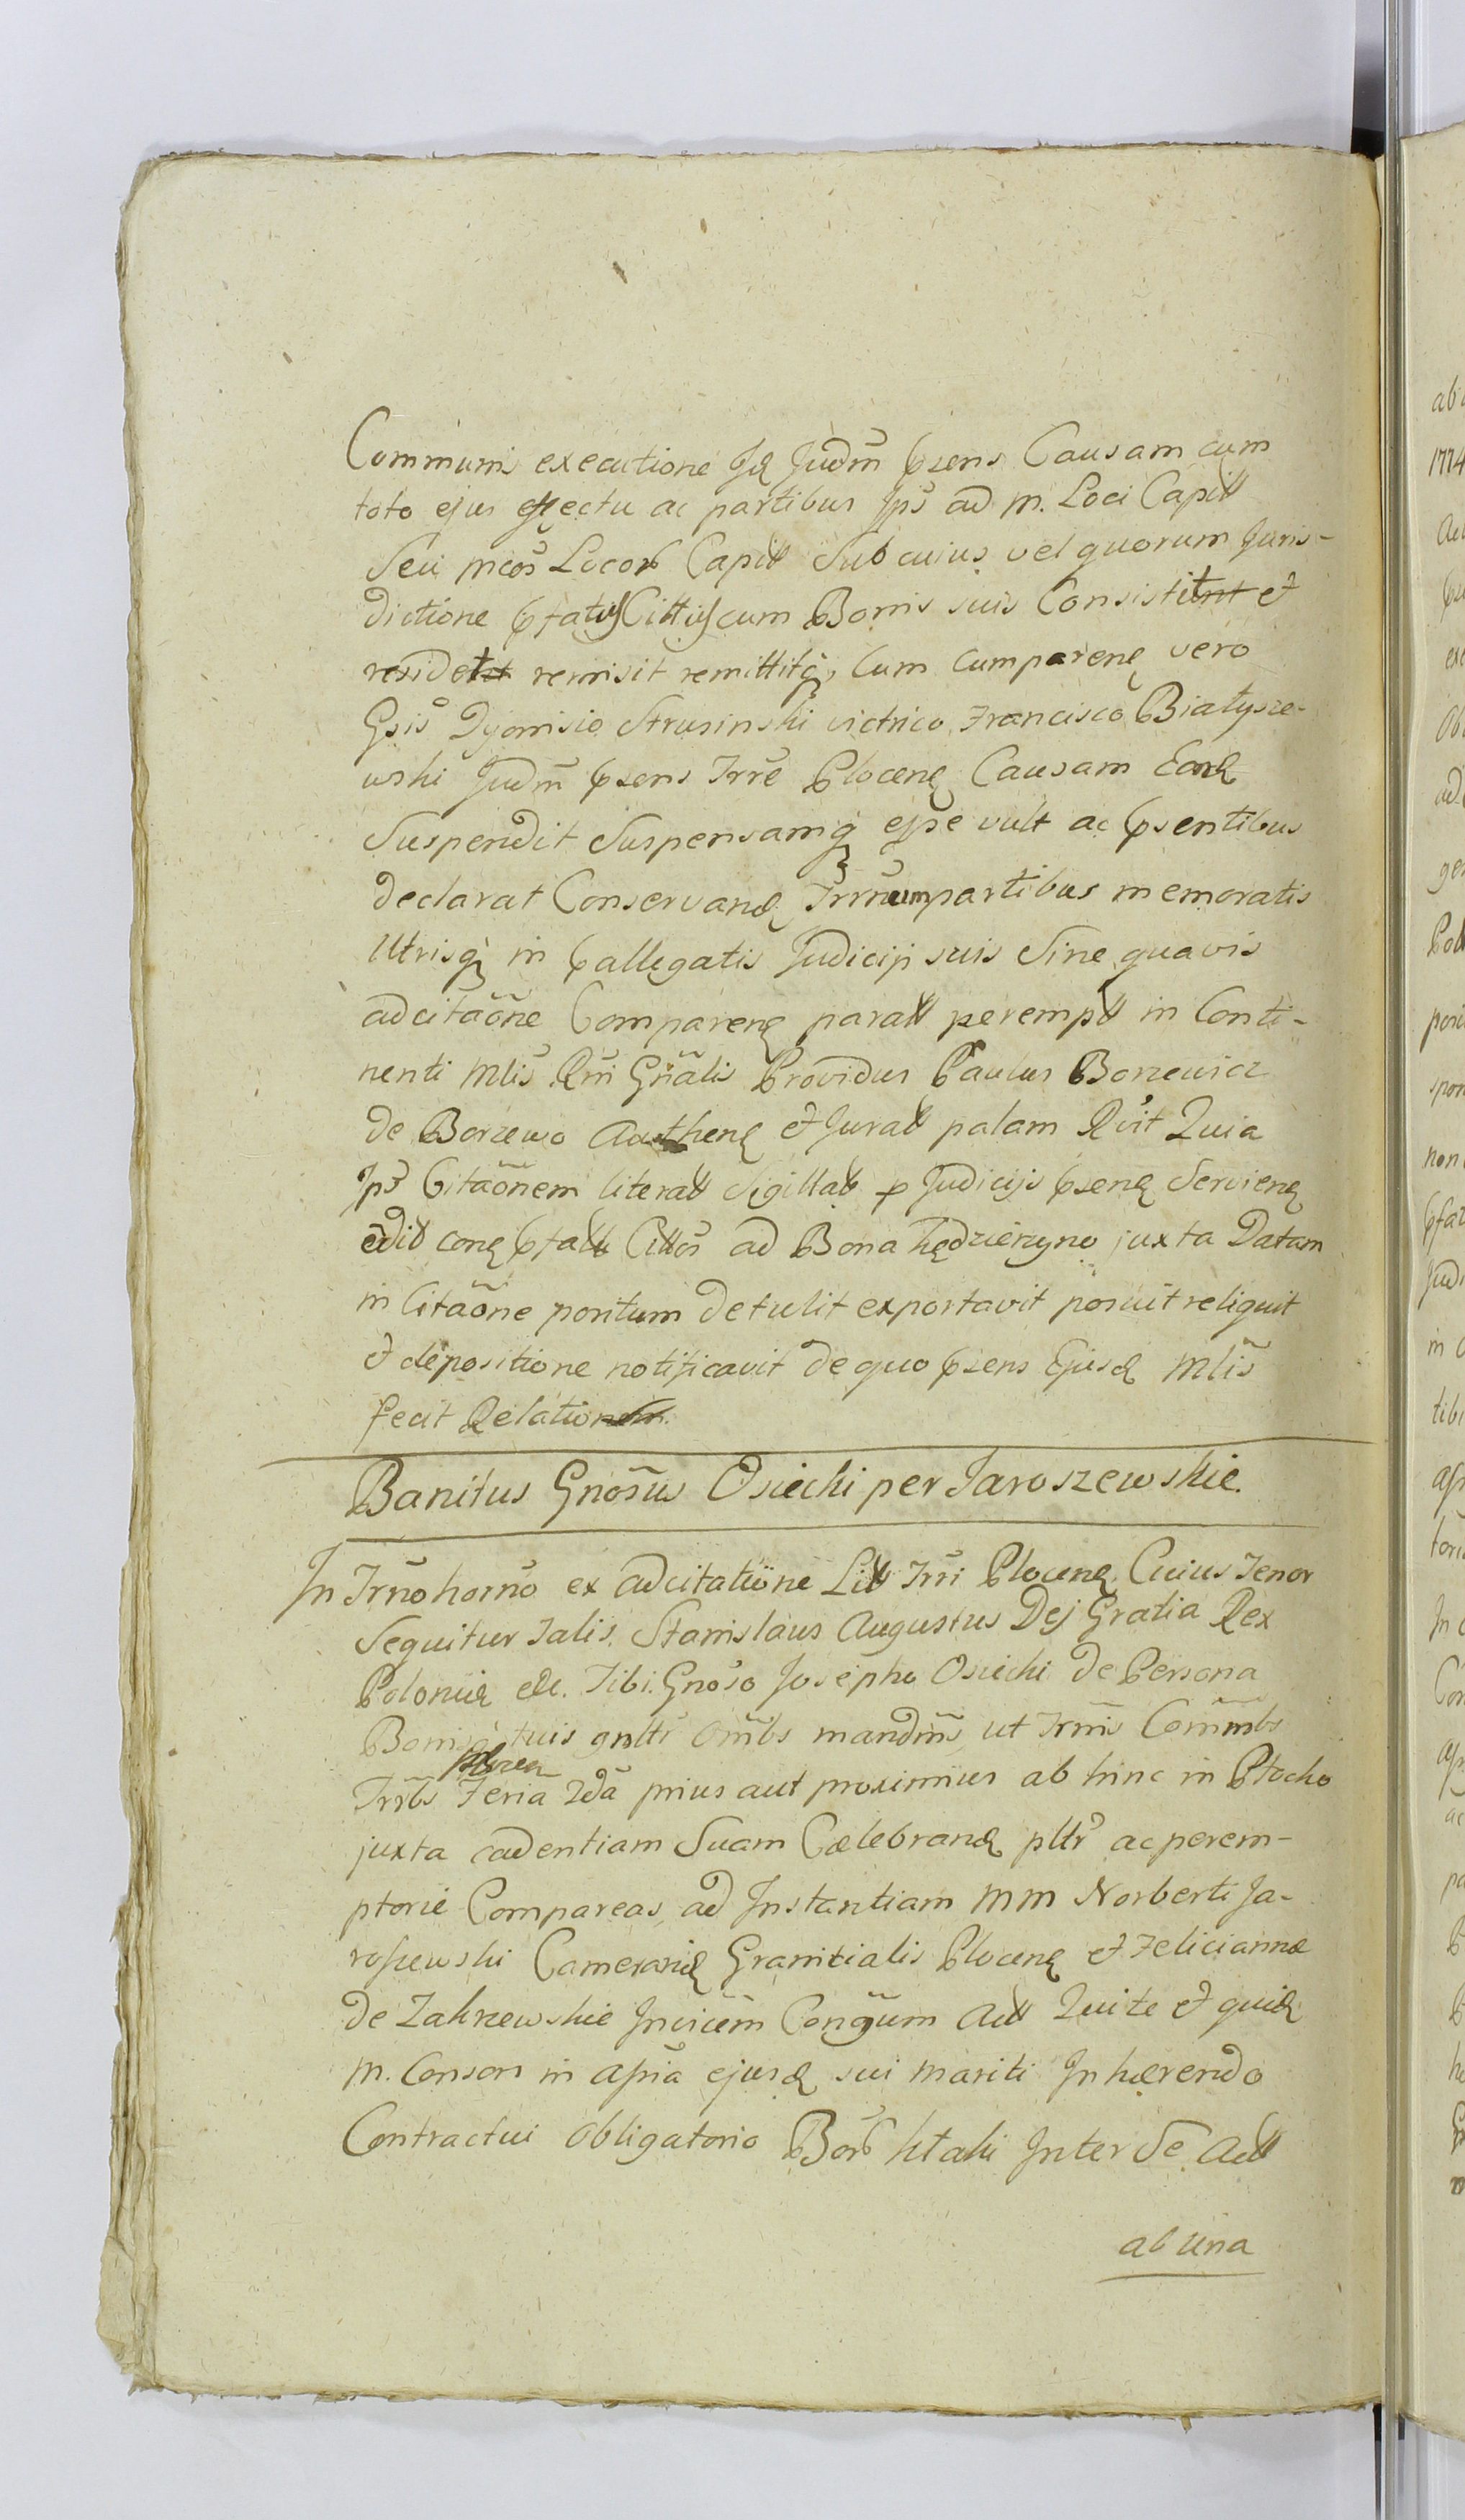 Communis executione Jd Judm̃ pñsens Causam cum
toto ejus effectu ac partibus Jps ad M. Loci Capitt
Seu mcos Locor Capitt Sub cuius vel quorum Juris-
dictione pfatus Cittus cum Bonis suis Consistit et
residet remisit remittitq, Cum Comparen vero
Gsis Dyonisio Strusinski victrico Francisco Białysze-
wski Judm̃ psens Trrẽ Plocen Causam Eand
Suspendit Suspensamq esse vult ac psentibus
declarat Conservand Trrnum partibus memoratis
Utrisq in pallegatis Judicij suis Sine quavis
adcitaõne Comparen paratt perempt in Conti-
nenti Mlis Rni Gñalis Providus Paulus Borzewicz
de Borzewo Authen et Jurat palam Rvit Quia
Jps Citaõnem literatt Sigillat p Judicijs psen Servien
edit con pfatt Cittos ad Bona Kędzierzyno juxta Datam
in Citaõne positum detulit exportavit posuit reliquit
et depositione notificavit de quo psens Ejusd Mlis
fecit Relationem
Banitus Gnosus Osiecki per Jaroszewskie.
In Trño horño ex adcitatione Litt Trri Plocen Cuius Tenor
Sequitur Talis. Stanislaus Augustus Dej Gratia Rex
Poloniæ etc. Tibi Gnoso Josepho Osiecki de Persona
Bonisq tuis gnltr Om̃bs mandm̃s, ut Trm̃is Com̃mbs
Trrbs Feria 2da prius aut proximius ab hinc in Płocko
juxta cadentiam Suam Cælebrand pltr ac perem-
ptorie Compareas, ad Instantiam MM Norberti Ja-
roszewski Camerarij Granitialis Plocen et Feliciannæ
de Zakrzewskie Invicem Conjgum Act Qui te et quid
M. Consors in assña ejusd sui mariti Inhærendo
Contractui obligatorio Bor Ktaki Inter Se Act
ab una